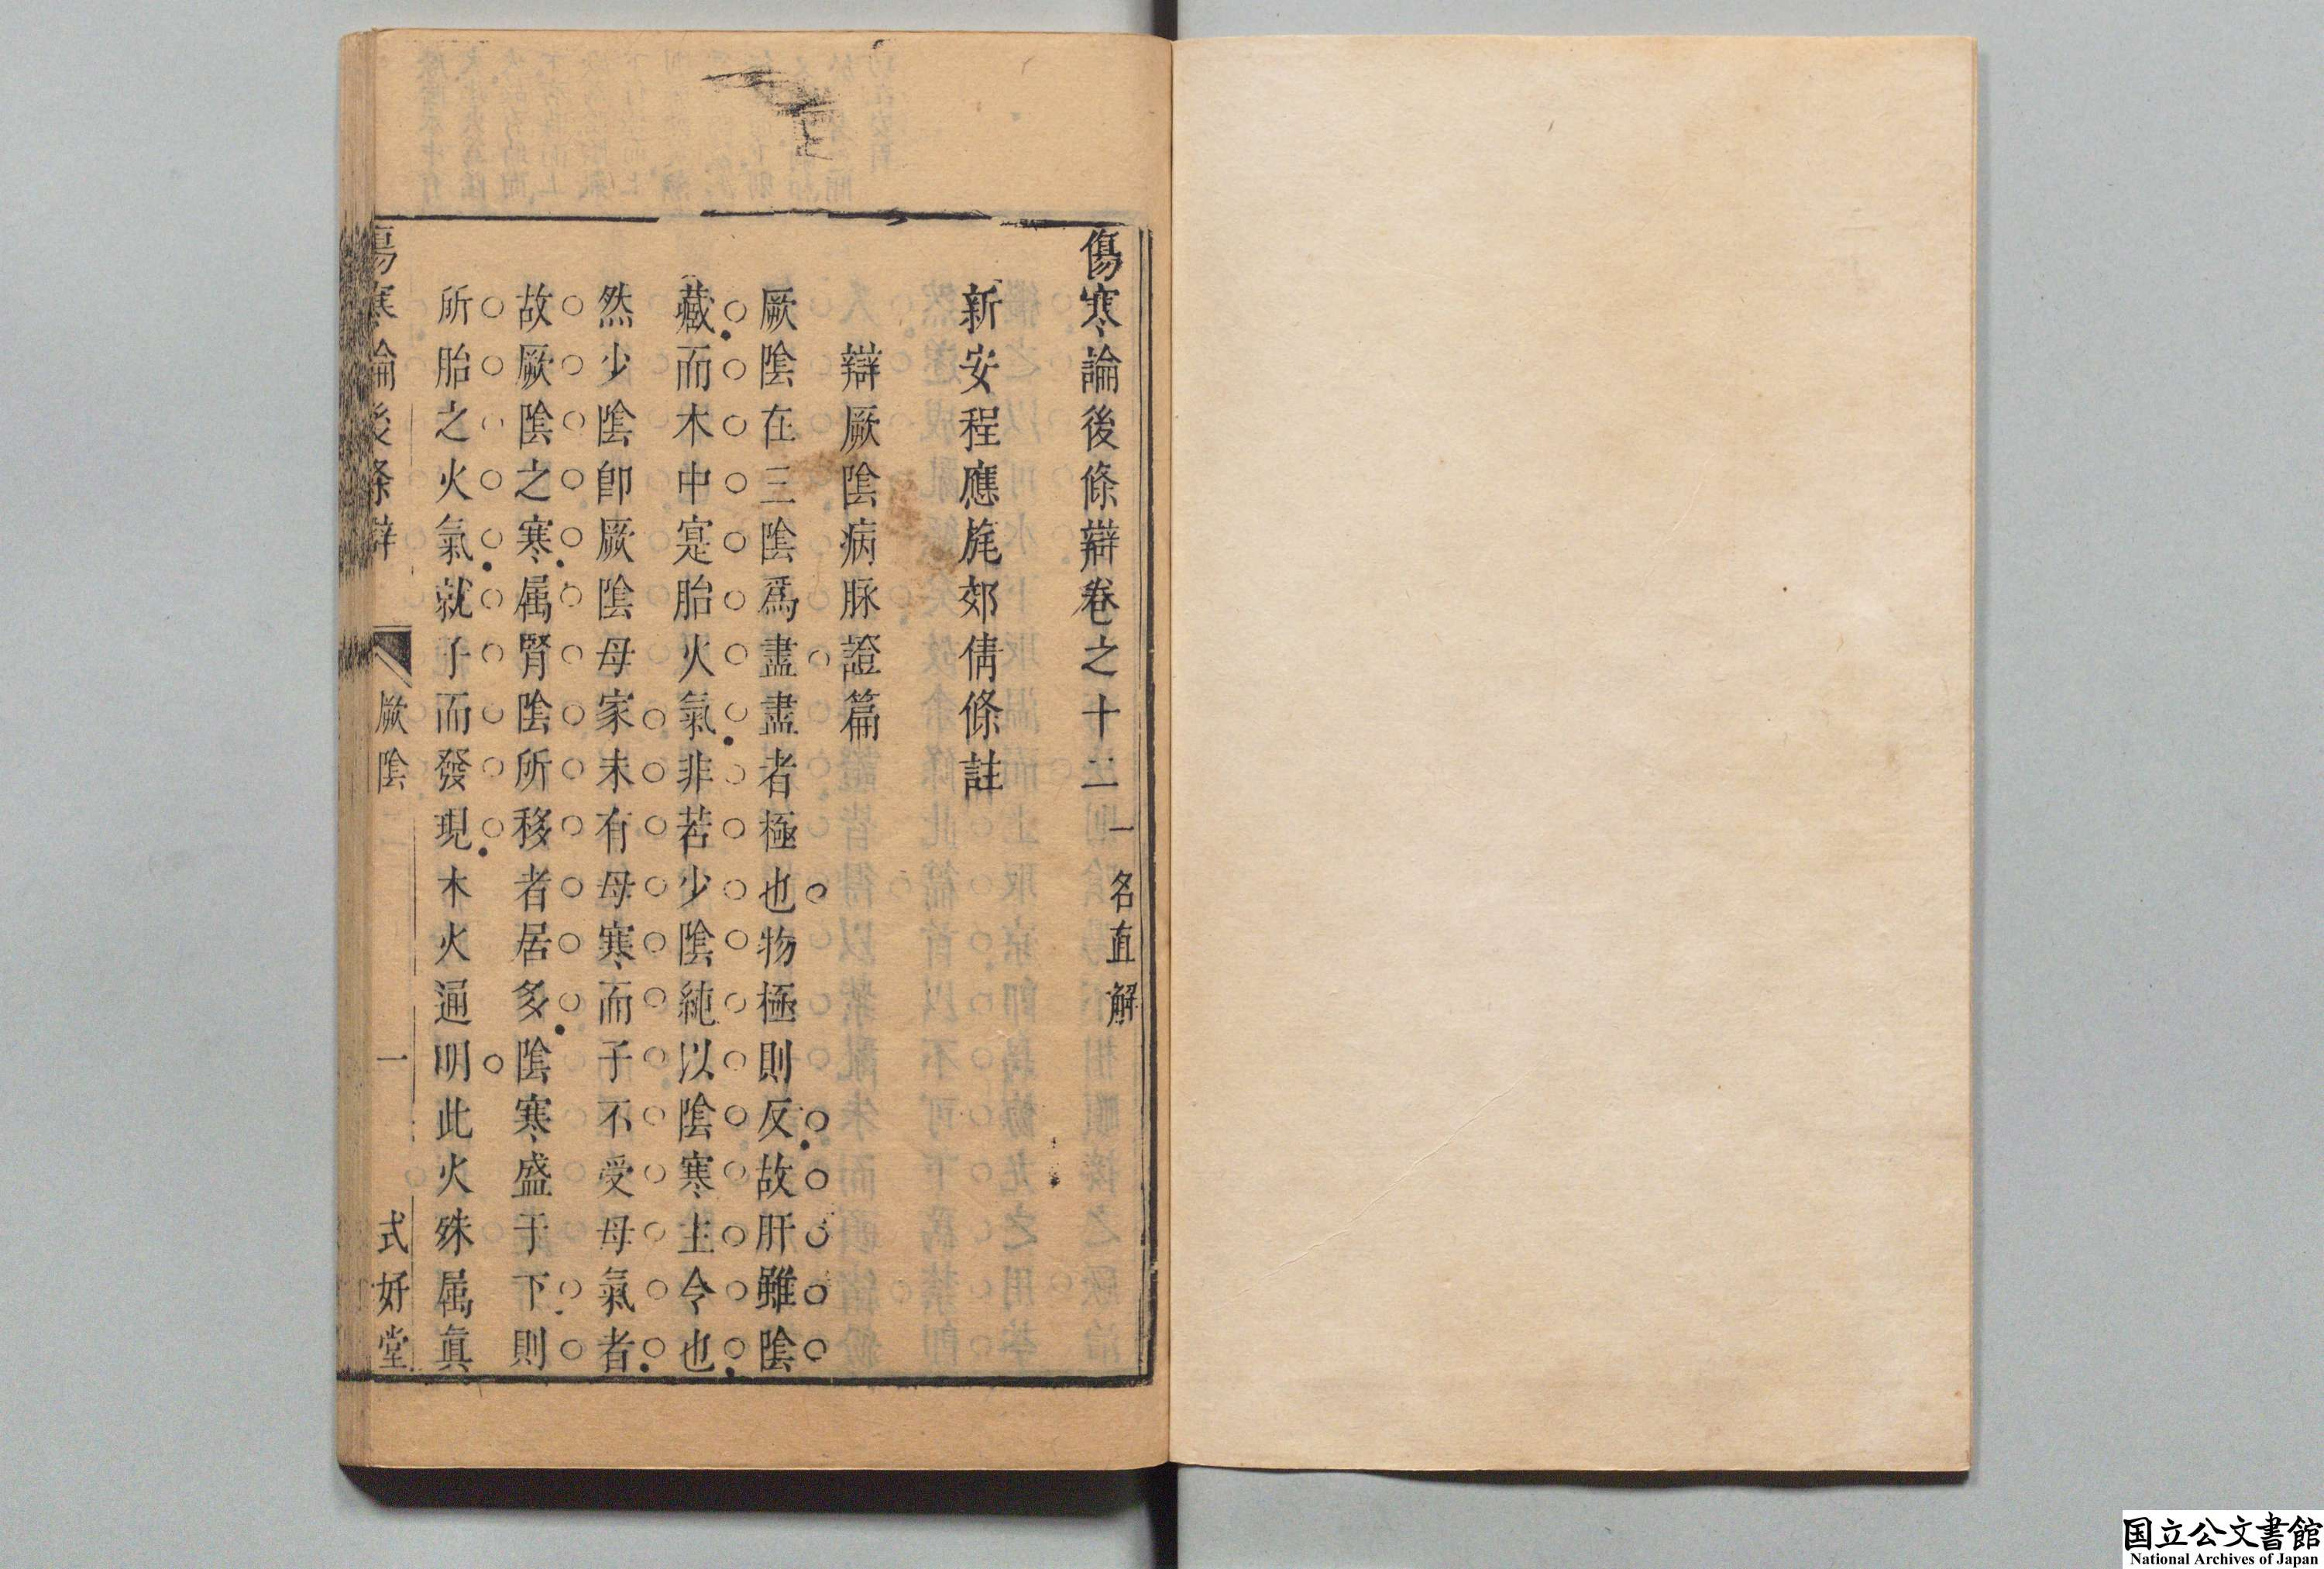 傷寒論後條辯卷之十二 一名直解
新安程應旄郊倩條註
辯厥陰病脉證篇
厥陰在三陰爲盡盡者極也物極則反故肝雖陰
藏而木中寔胎火氣非若少陰純以陰寒主令也
然少陰卽厥陰母家未有母寒而子不受母氣者
故厥陰之寒属腎陰所移者居多陰寒盛于下則
所胎之火氣就子而發現木火通明此火殊属眞
傷寒論後條辯 厥陰 一 式好堂
国立公文書館
National Archives of Japan